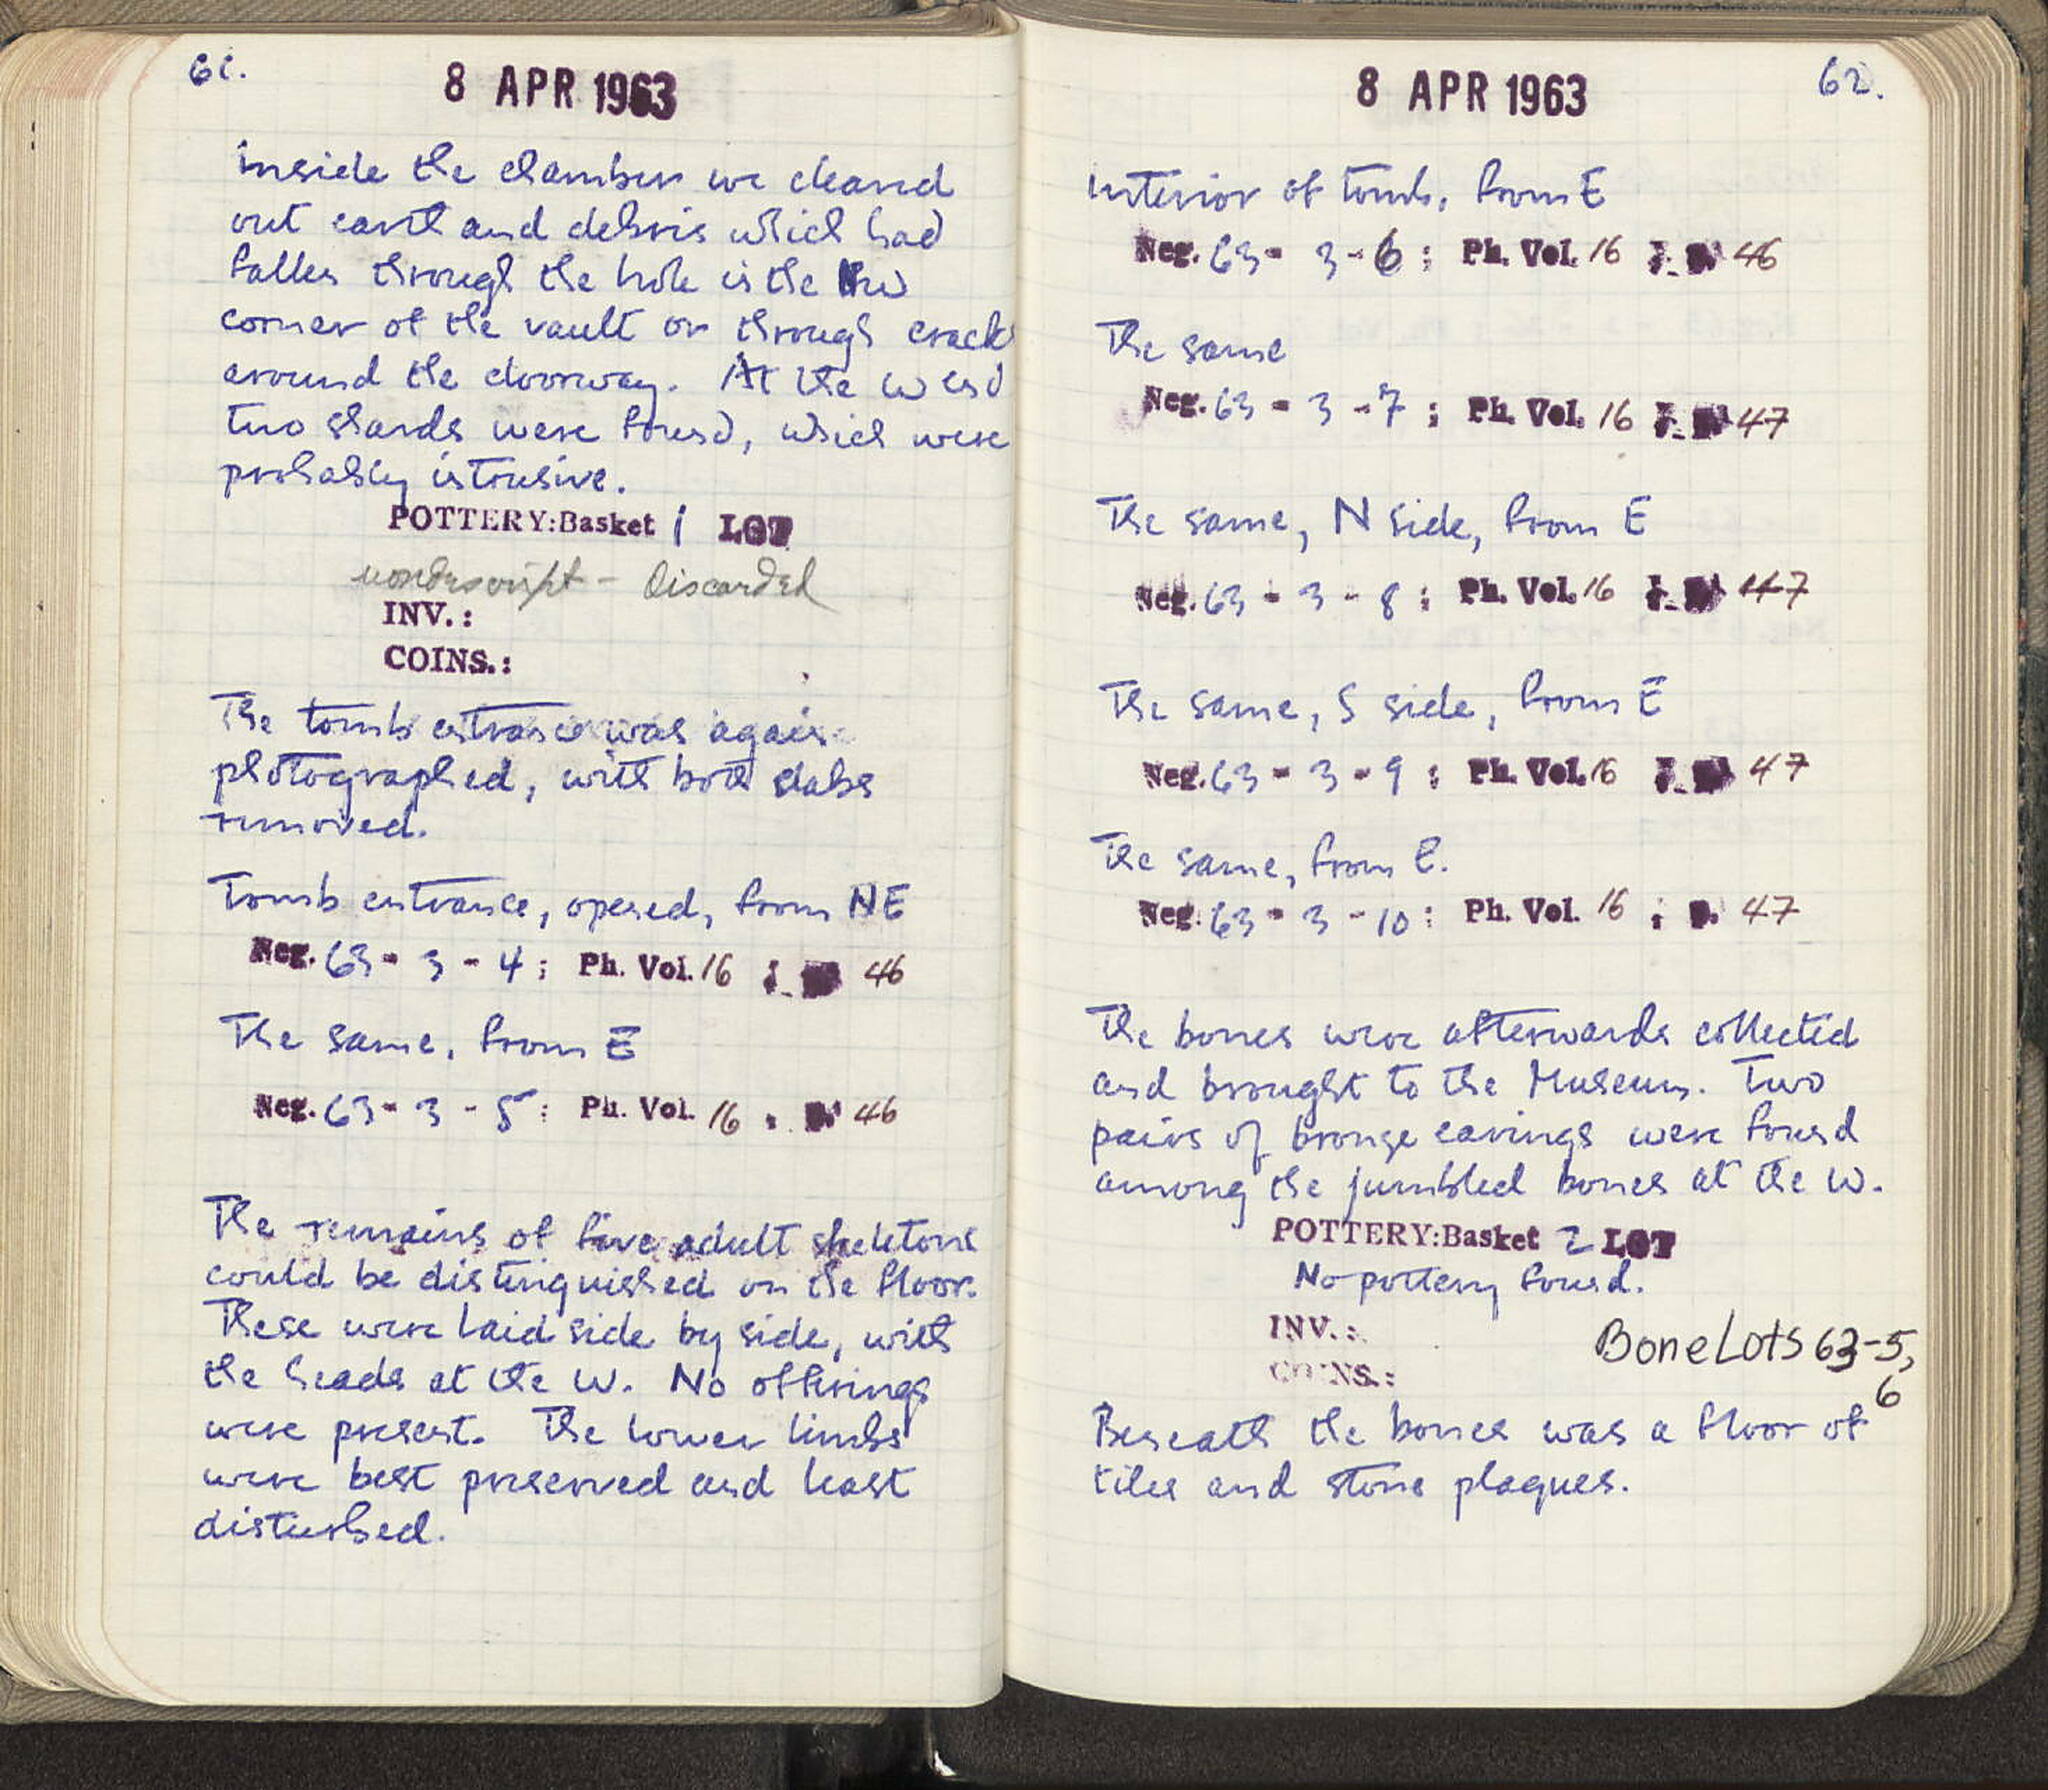 61.
8 APR 1963
Inside the chamber we cleared
out earth and debris which had
fallen through the hole in the NW
corner of the vault or through cracks
around the doorway. At the W end
two shards were found, which were
probably intrusive.
POTTERY: Basket 1 LOT
nondescript - Discarded
INV.:
COINS.:
The tomb entrance was again
photographed, with both slabs
removed.
Tomb entrance, opened, from NE
Neg. 63-3-4; Ph. Vol. 16 46
The same, from E
Neg. 63-3-5: Ph. Vol. 16 46
The remains of five adult skeletons
could be distinguished on the floor.
These were laid side by side, with
the heads at the W. No offerings
were present. The lower limbs
were best preserved and least
disturbed.
62.
8 APR 1963
Interior of tomb, from E
Neg. 63-3-6; Ph. Vol. 16 46
The same
Neg. 63-3-7; Ph. Vol. 16 47
The same, N side, from E
Neg. 63-3-8; Ph. Vol. 16 47
The same, S side, from E
Neg. 63-3-9; Ph. Vol. 16 47
The same, from E.
Neg. 63-3-10: Ph. Vol. 16, p. 47
The bones were afterwards collected
and brought to the Museum. Two
pairs of bronze earings were found
among the jumbled bones at the W.
POTTERY: Basket 2 LOT
No pottery found.
INV.:
Bone Lots 63-5,
6
COINS.:
Beneath the bones was a floor of
tiles and stone plaques.